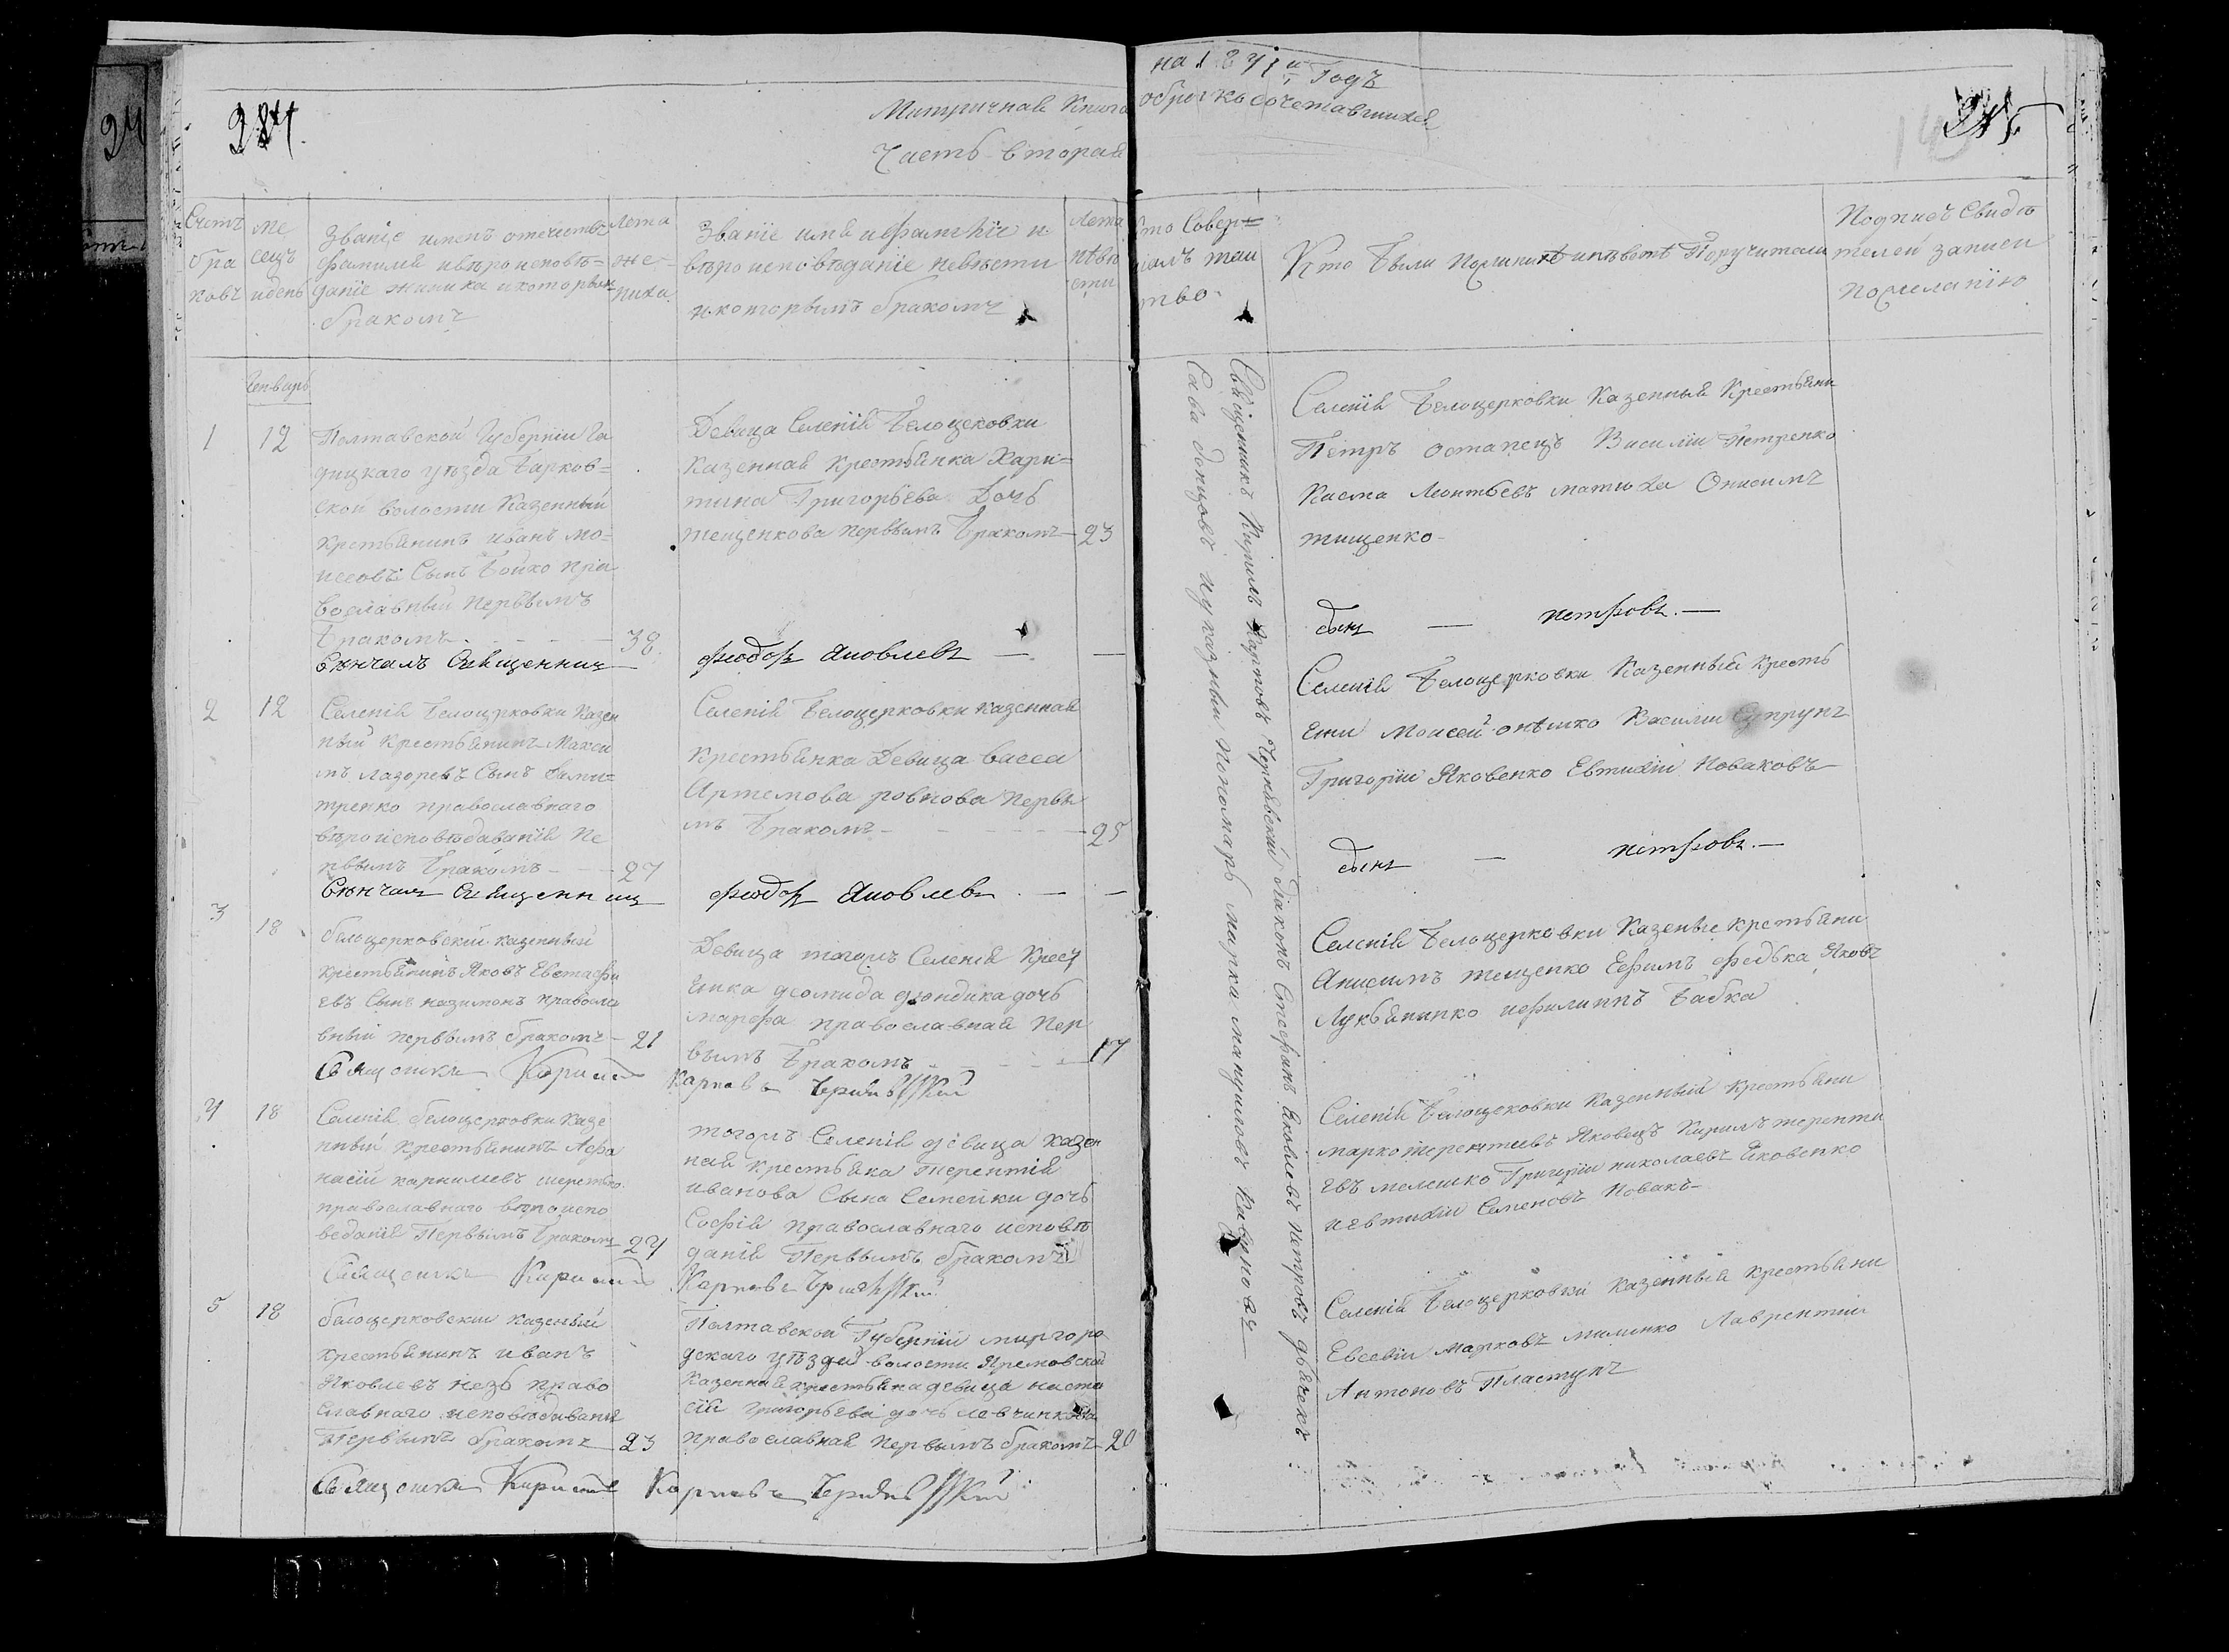 на 1841й Годъ
284.
Митричная Книга о бракосочетавшихся
Часть вторая
Счетъ браковъ
Месецъ и день
Званіе имень отечиство
фамилія и вѣроисповѣ=
даніе жиника и которым
бракомъ
Лета жениха
Званіе имя и фамилія и
вѣроисповѣданіе невѣсти
и которымъ бракомъ
Лета невѣсти
Кто Совер=
шалъ таи
тво
Кто были поручители
Подписъ свидѣ
телей записи
по желанію
Генварь
1
12
Полтавской Губерніи Га
дицкаго уѣзда Барков=
ской волости Казенный
крестьянинъ иванъ мо=
исеовъ Сынъ Бойко пра
вославный первымъ
бракомъ - 38
Девица Селенія Белоцековки
Казенная крестьянка Хари=
тина Григорьева Дочь
тещенкова первымъ бракомъ - 23
Селенія Белоцерковки Казенныя Крестьяни
Петръ остапецъ Василіи Петренко
Касма Леонтьевъ матюха Онисимъ
тищенко -
Вѣнчалъ Священникъ Феодоръ Яковлевъ —
сынъ — петровъ. —
2
12
Селенія Белоцерковки Казен
ный крестьянинъ Макси
мъ лазоревъ Сынъ Дими=
тренко православнаго
вѣроисповѣдаванія пе
рвымъ бракомъ - 27
Селенія Белоцерковки казенная
крестьянка Девица васса
Артемова ровнова первы
мъ бракомъ - 25
Селенія Белоцерковки Казенныя кресть
яни Моисей онѣшко Василіи Супрунъ
Григоріи Яковенко Евтихіи Новаковъ
Вѣнчалъ Священникъ Феодоръ Яковлевъ. —
сынъ — петровъ. —
3
18
белоцерковскіи казенный
крестьянинъ Яковъ Евстафи
евъ Сынъ назимокъ правосла
вный первымъ бракомъ - 21
Девица тогожъ Селенія крест
янка деомида дзюндика дочь
марфа православная пер
вымъ бракомъ - 17
Селенія Белоцерковки Казеные крестьяни
Анисимъ тещенко Ефимъ федька Яковъ
Лукьянинко ифилиппъ бабка
Священикъ Кирилъ Карповъ Чернявскій
4
18
Селенія белоцерковки Казе
нный крестьянинъ Афа
насіи карниліевъ шеретько
православнаго вѣроиспо
веданія первымъ бракомъ 24
тогожъ Селенія девица казен
ная крестьяка терентія
иванова Сына Семеики дочь
Софія православнаго исповѣ
данія первымъ бракомъ
Селенія Белоцековки казенный крестьяни
марко терентиевъ Яковецъ Кирилъ теренти
евъ мелешко Григоріи николаевъ Яковенко
и евтихіи Семеновъ Новакъ -
Священикъ Кирилъ Карповъ Чернявскій
5
18
белоцерковскіи казеный
крестьянинъ иванъ
Яковлевъ незь право
славнаго исповѣдаванія
первымъ бракомъ 23
Полтавской Губерніи миргоро
дскаго уѣзда волости Яремовской
Казенная крестьяна девица наста
сія григорьева дочь левчинкова
православная первымъ бракомъ - 20
Селенія Белоцерковки казенныя крестьяни
Евсевіи Марковъ милинко Лаврентіи
Антоновъ Пластунъ
Священикъ Кирилъ Карповъ Чернявскій
Священникъ Кирилъ Карповъ Чернявскій Діаконъ Стефанъ Яковлевъ Петровъ дьячекъ
Сава донцовъ и указный пономарь марка мануиловъ Кавуновъ